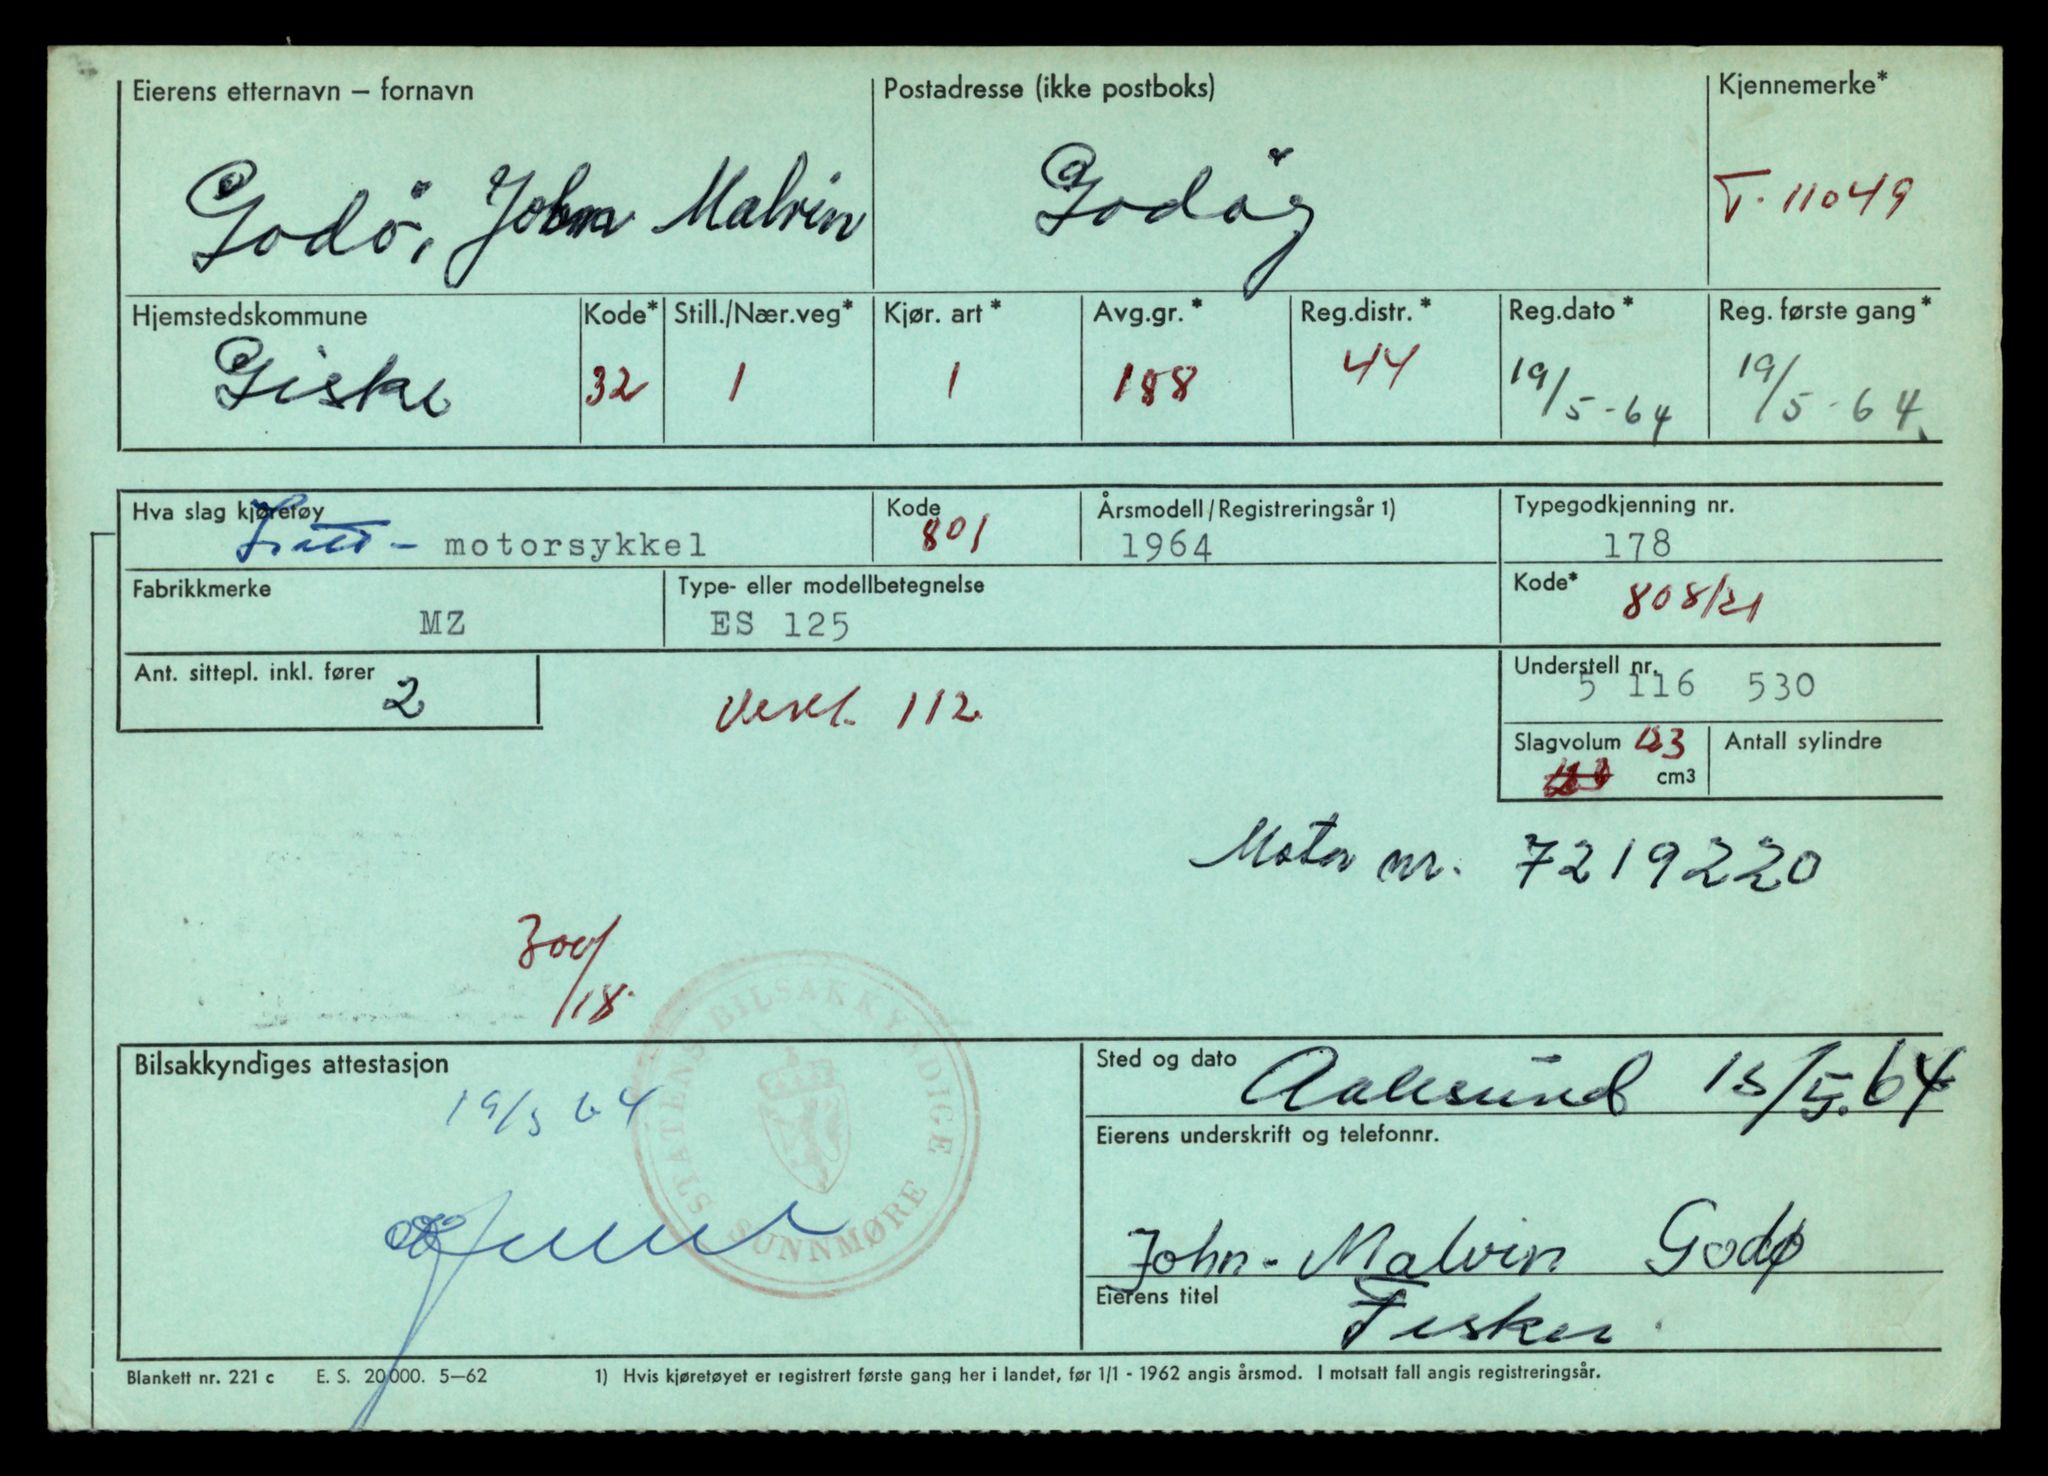 Eierens etternavn – fornavn
Postadresse (ikke postboks)
Kjennemerke*
Godö, John Malvin
Godöy
T-11049
Hjemstedskommune
Kode*
Still./Nær.veg*
Kjør. art*
Avg.gr.*
Reg.distr.*
Reg.dato*
Reg. første gang*
Giske
32
1
1
188
44
19/5-64
19/5-64
Hva slag kjøretøy
Kode
Årsmodell/Registreringsår 1)
Typegodkjenning nr.
Lett- motorsykkel
801
1964
178
Fabrikkmerke
Type- eller modellbetegnelse
Kode*
MZ
ES 125
808/21
Ant. sittepl. inkl. fører
2
112
Understell nr.
5 116 530
Slagvolum 123
cm3
Antall sylindre
Motor nr. 7219220
300/18
STATENS BILSAKKYNDIGE SUNNMØRE
Bilsakkyndiges attestasjon
19/5 64
Sted og dato
Aalesund 15/5.64
Eierens underskrift og telefonnr.
John-Malvin Godø
Eierens titel
Fisker
Blankett nr. 221 c E. S. 20 000. 5–62 1) Hvis kjøretøyet er registrert første gang her i landet, før 1/1 - 1962 angis årsmod. I motsatt fall angis registreringsår.